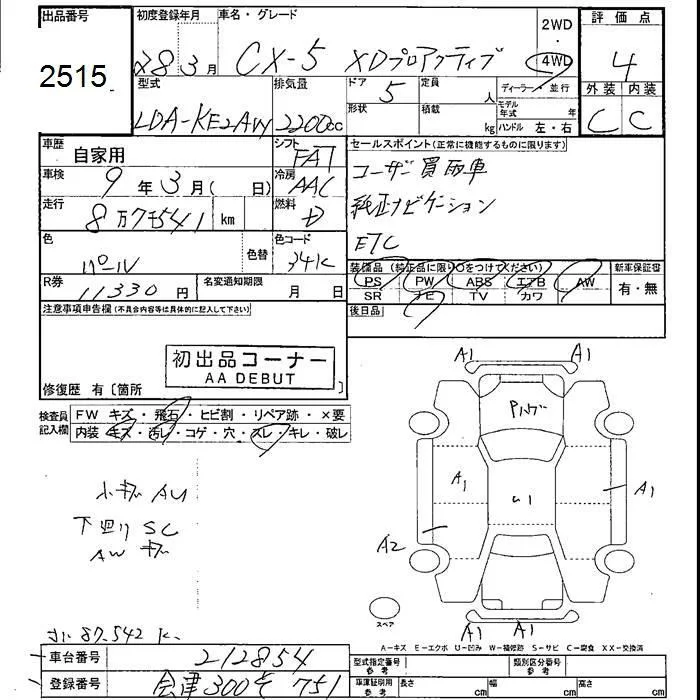 出品番号
2515
初度登録年月 車名・グレード
28 3月 CX-5 XDプロアクティブ
2WD
・
4WD
評価点
4
外装 内装
C C
型式 排気量 ドア 5 定員 人 ディーラー・並行
LDA-KE2AW 2200cc 形状 積載 kg モデル年式 年
ハンドル 左・右
車歴 自家用
シフト FAT
車検 9年3月( 日)
冷房 AAC
走行 8万7千541 km
燃料
色 パール 色替 色コード 34K
R券 11330円 名変通知期限 月 日
セールスポイント(正常に機能するものに限ります)
ユーザー買取車
純正ナビゲーション
ETC
装備品 (純正品に限り○をつけてください) 新車保証書
PS PW ABS エアB AW 有・無
SR ナビ TV カワ
後日品
注意事項申告欄(不具合内容等は具体的に記入して下さい)
初出品コーナー
AA DEBUT
修復歴 有〔箇所 〕
検査員記入欄 FW キズ・飛石・ヒビ割・リペア跡・×要
内装 キズ・汚レ・コゲ・穴・スレ・キレ・破レ
小キズ AU
下廻り SC
AW キズ
A1 A1
A1
A1
A2
A1 A1
スペア
87.542 K
A-キズ E-エクボ U-凹み W-補修跡 S-サビ C-腐食 XX-交換済
車台番号 212854
登録番号 会津300 751
型式指定番号 参考 類別区分番号 参考
車庫証明用 参考 長さ cm 幅 cm 高さ cm